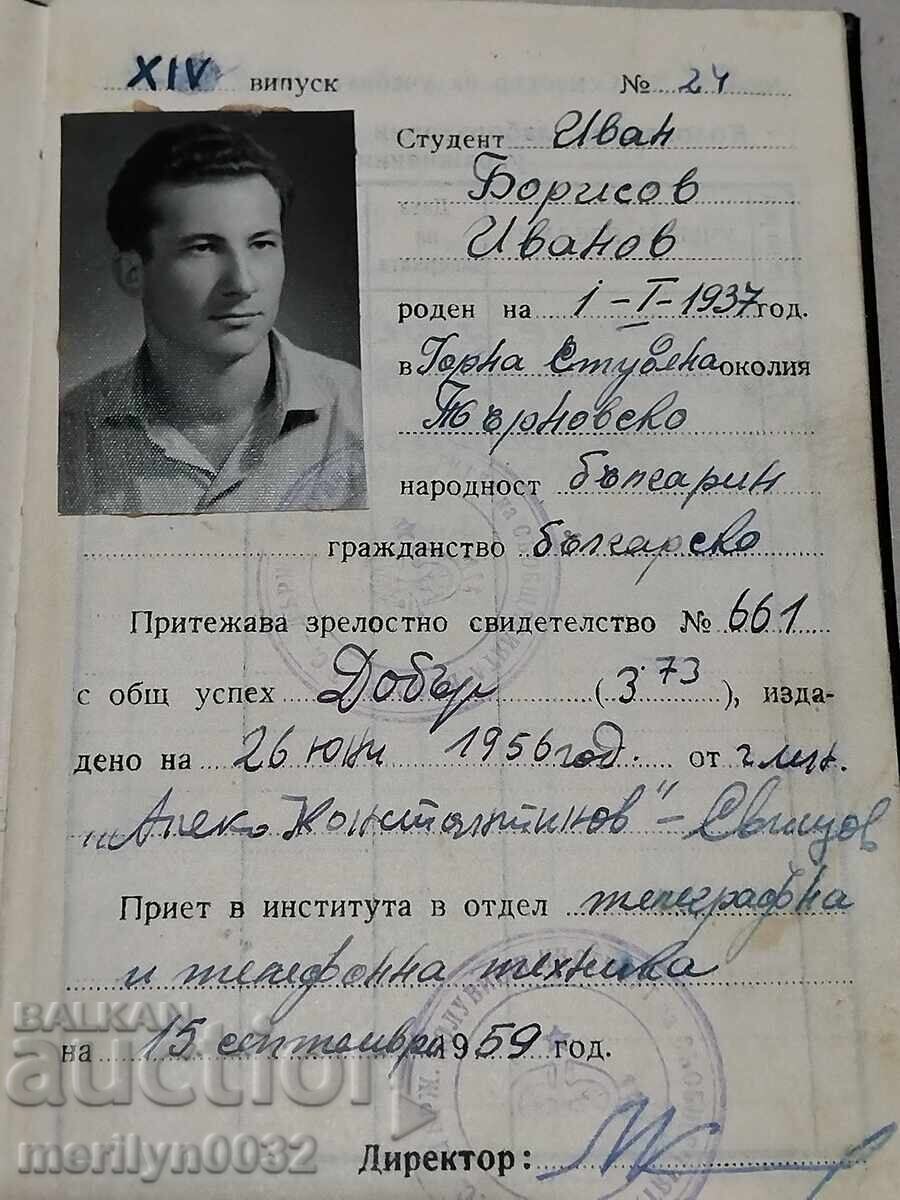 XIV випуск № 24
Студент Иван
Борисов
Иванов
роден на 1-I-1937 год.
в Горна Студена околия
Търновско
народност българин
гражданство българско
Притежава зрелостно свидетелство № 661
с общ успех Добър (3.73), изда-
дено на 26 юни 1956 год. от
„Алеко Константинов" - Свищов
Приет в института в отдел телеграфна
и телефонна техника
на 15 септември 1959 год.
Директор:
BALKAN
auction
merilyn0032